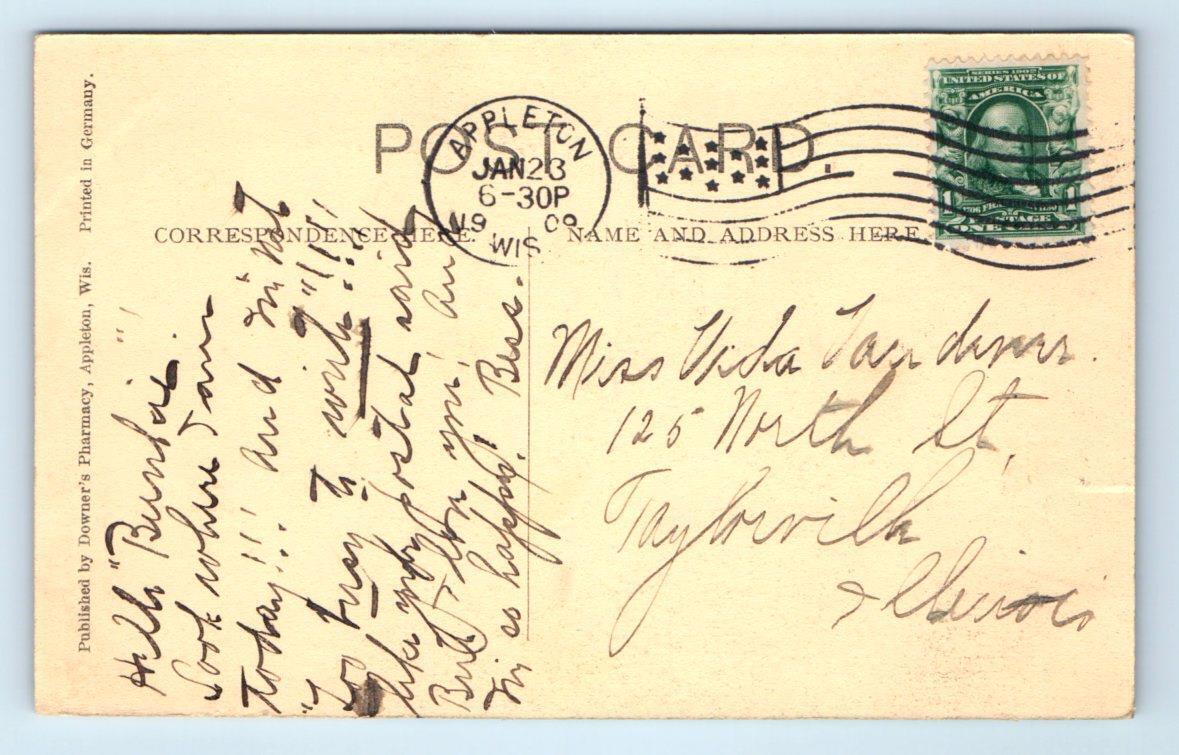 Published by Downer's Pharmacy, Appleton, Wis. Printed in Germany.
POST CARD.
APPLETON
JAN 23
6-30P
09
WIS
SERIES 1902
UNITED STATES OF
AMERICA
POSTAGE
CORRESPONDENCE HERE.
NAME AND ADDRESS HERE
Hello "
Look where I am
today!! And I'm not
"too busy to write"!!!
like your postal said
But I love you, and
I'm so happy! Bess.
Miss Vida Vandeveer.
125 North St,
Taylorville
Illinois